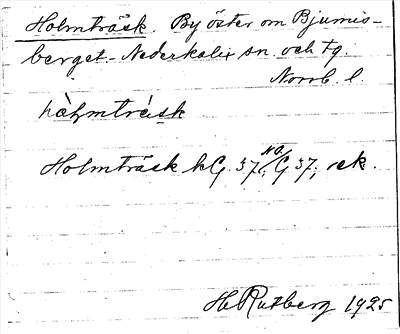 Holmträsk. By öster om Bjumis-
berget. Nederkalix sn. och tg.
Norrb. l.
hòlmtrèsk
Holmträsk kG. 37, NO./G 37; ek.
H. Rutberg 1925